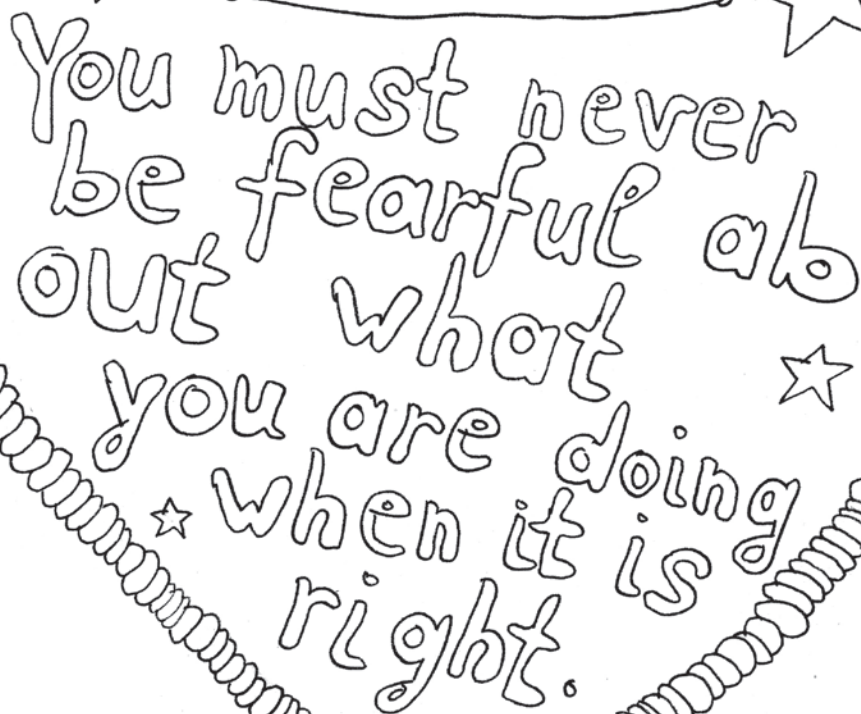 You must never
be fearful ab
out what
you are doing
when it is
right.